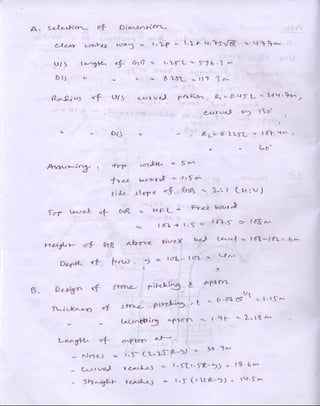 A. Selection of Dimension.
Clear water way = 1.2P = 1.2 * 4.75√Q = 477m
U/S length of GB = 1.25L = 596.3 m
D/S " " " = 0.25L = 119.3m
Radius of U/S curved portion, R₁ = 0.45L = 214.7m,
curved by 130°
" " D/S " " R₂ = 0.225L = 107.4m,
" " 60°
Assuming: top width = 5m
free board = 1.5m
side slope of GB = 2:1 (H:V)
Top level of GB = HFL + Free board
= 106 + 1.5 = 107.5 ≃ 108m
Height of GB above river bed level = 108-102 = 6m
Depth of flow, y = 106-102 = 4m
B. Design of stone pitching & apron
Thickness of stone pitching, t = 0.06 Q^1/3 = 1.15m
" " launching apron = 1.9t = 2.18m
Length of apron at
- Noses = 1.5 (2.25R-y) = 30.9m
- Curved reaches = 1.5(1.5R-y) = 18.6m
- Straight reaches = 1.5 (1.25R-y) = 14.5m